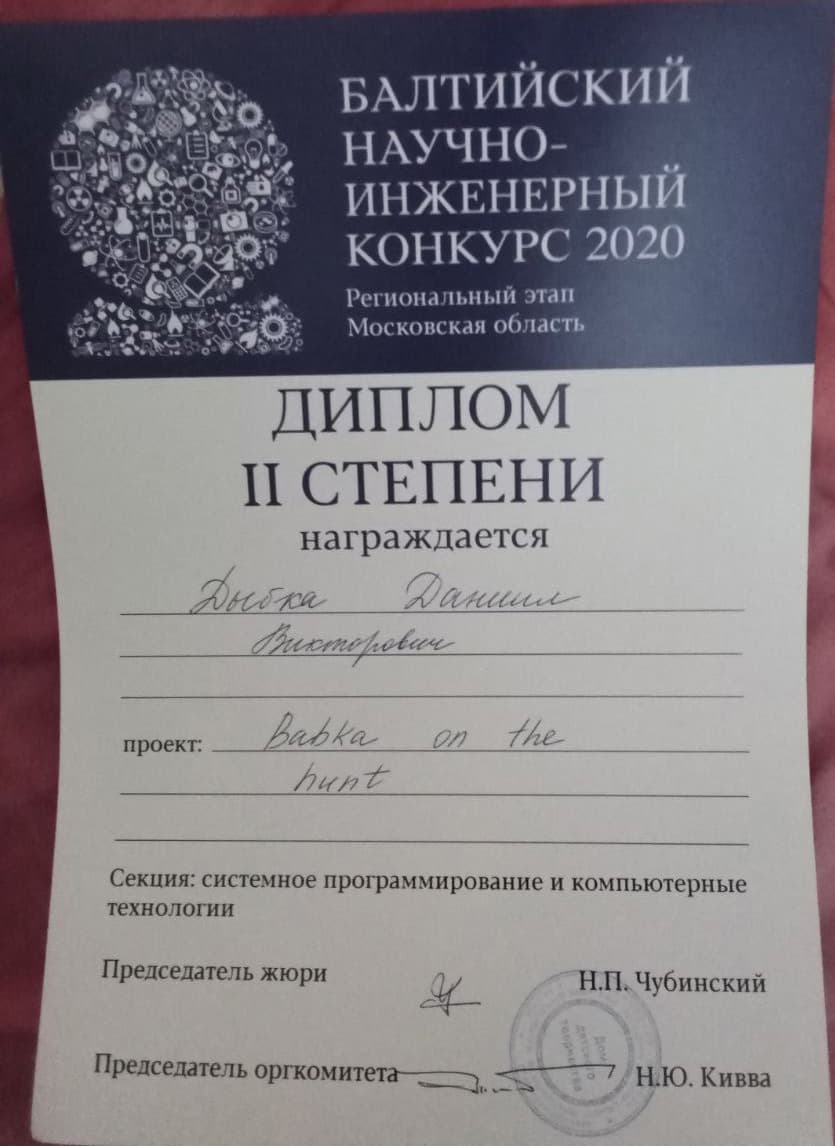 БАЛТИЙСКИЙ
НАУЧНО-
ИНЖЕНЕРНЫЙ
КОНКУРС 2020
Региональный этап
Московская область
ДИПЛОМ
II СТЕПЕНИ
награждается
Дыбка Даниил
Викторович
проект: Babka on the
hunt
Секция: системное программирование и компьютерные
технологии
Председатель жюри Н.П. Чубинский
Председатель оргкомитета Н.Ю. Кивва
Дом
детского
творчества